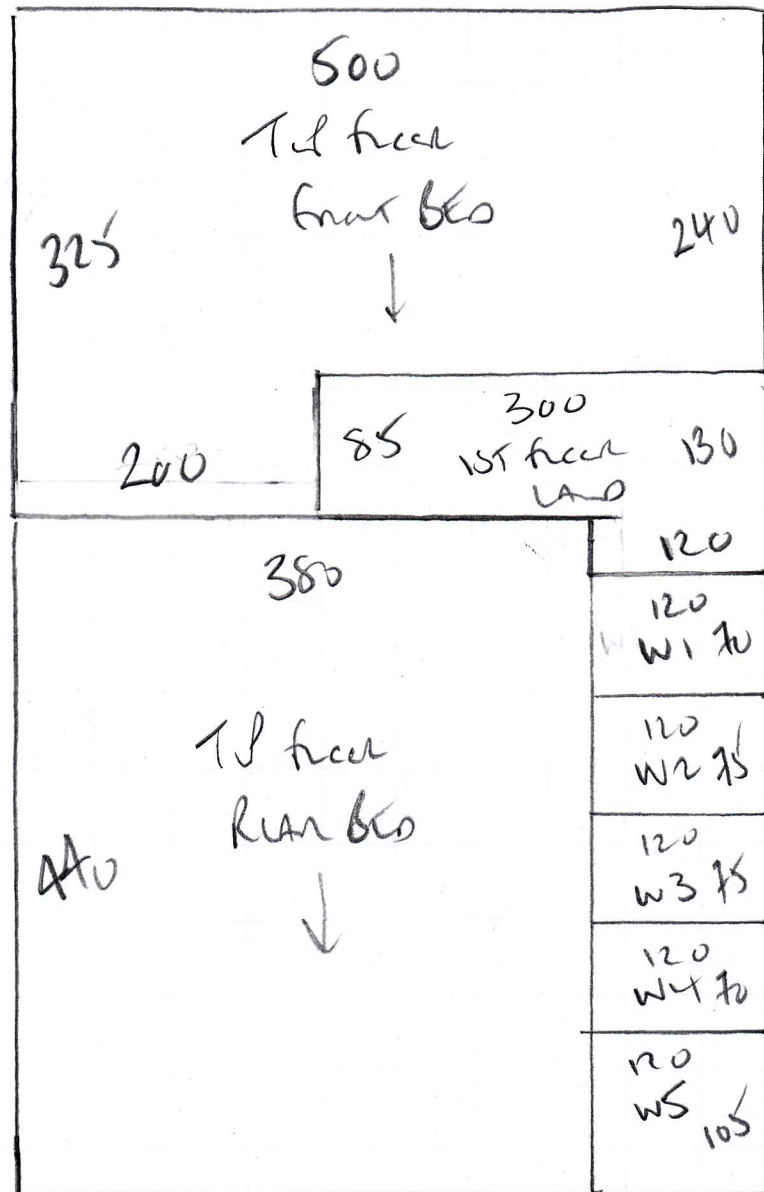 500
Top floor
front BED
325
240
200
85
300
1ST floor
LAND
130
120
380
Top floor
REAR BED
440
120
W1 70
120
W2 75
120
W3 75
120
W4 70
120
W5 105